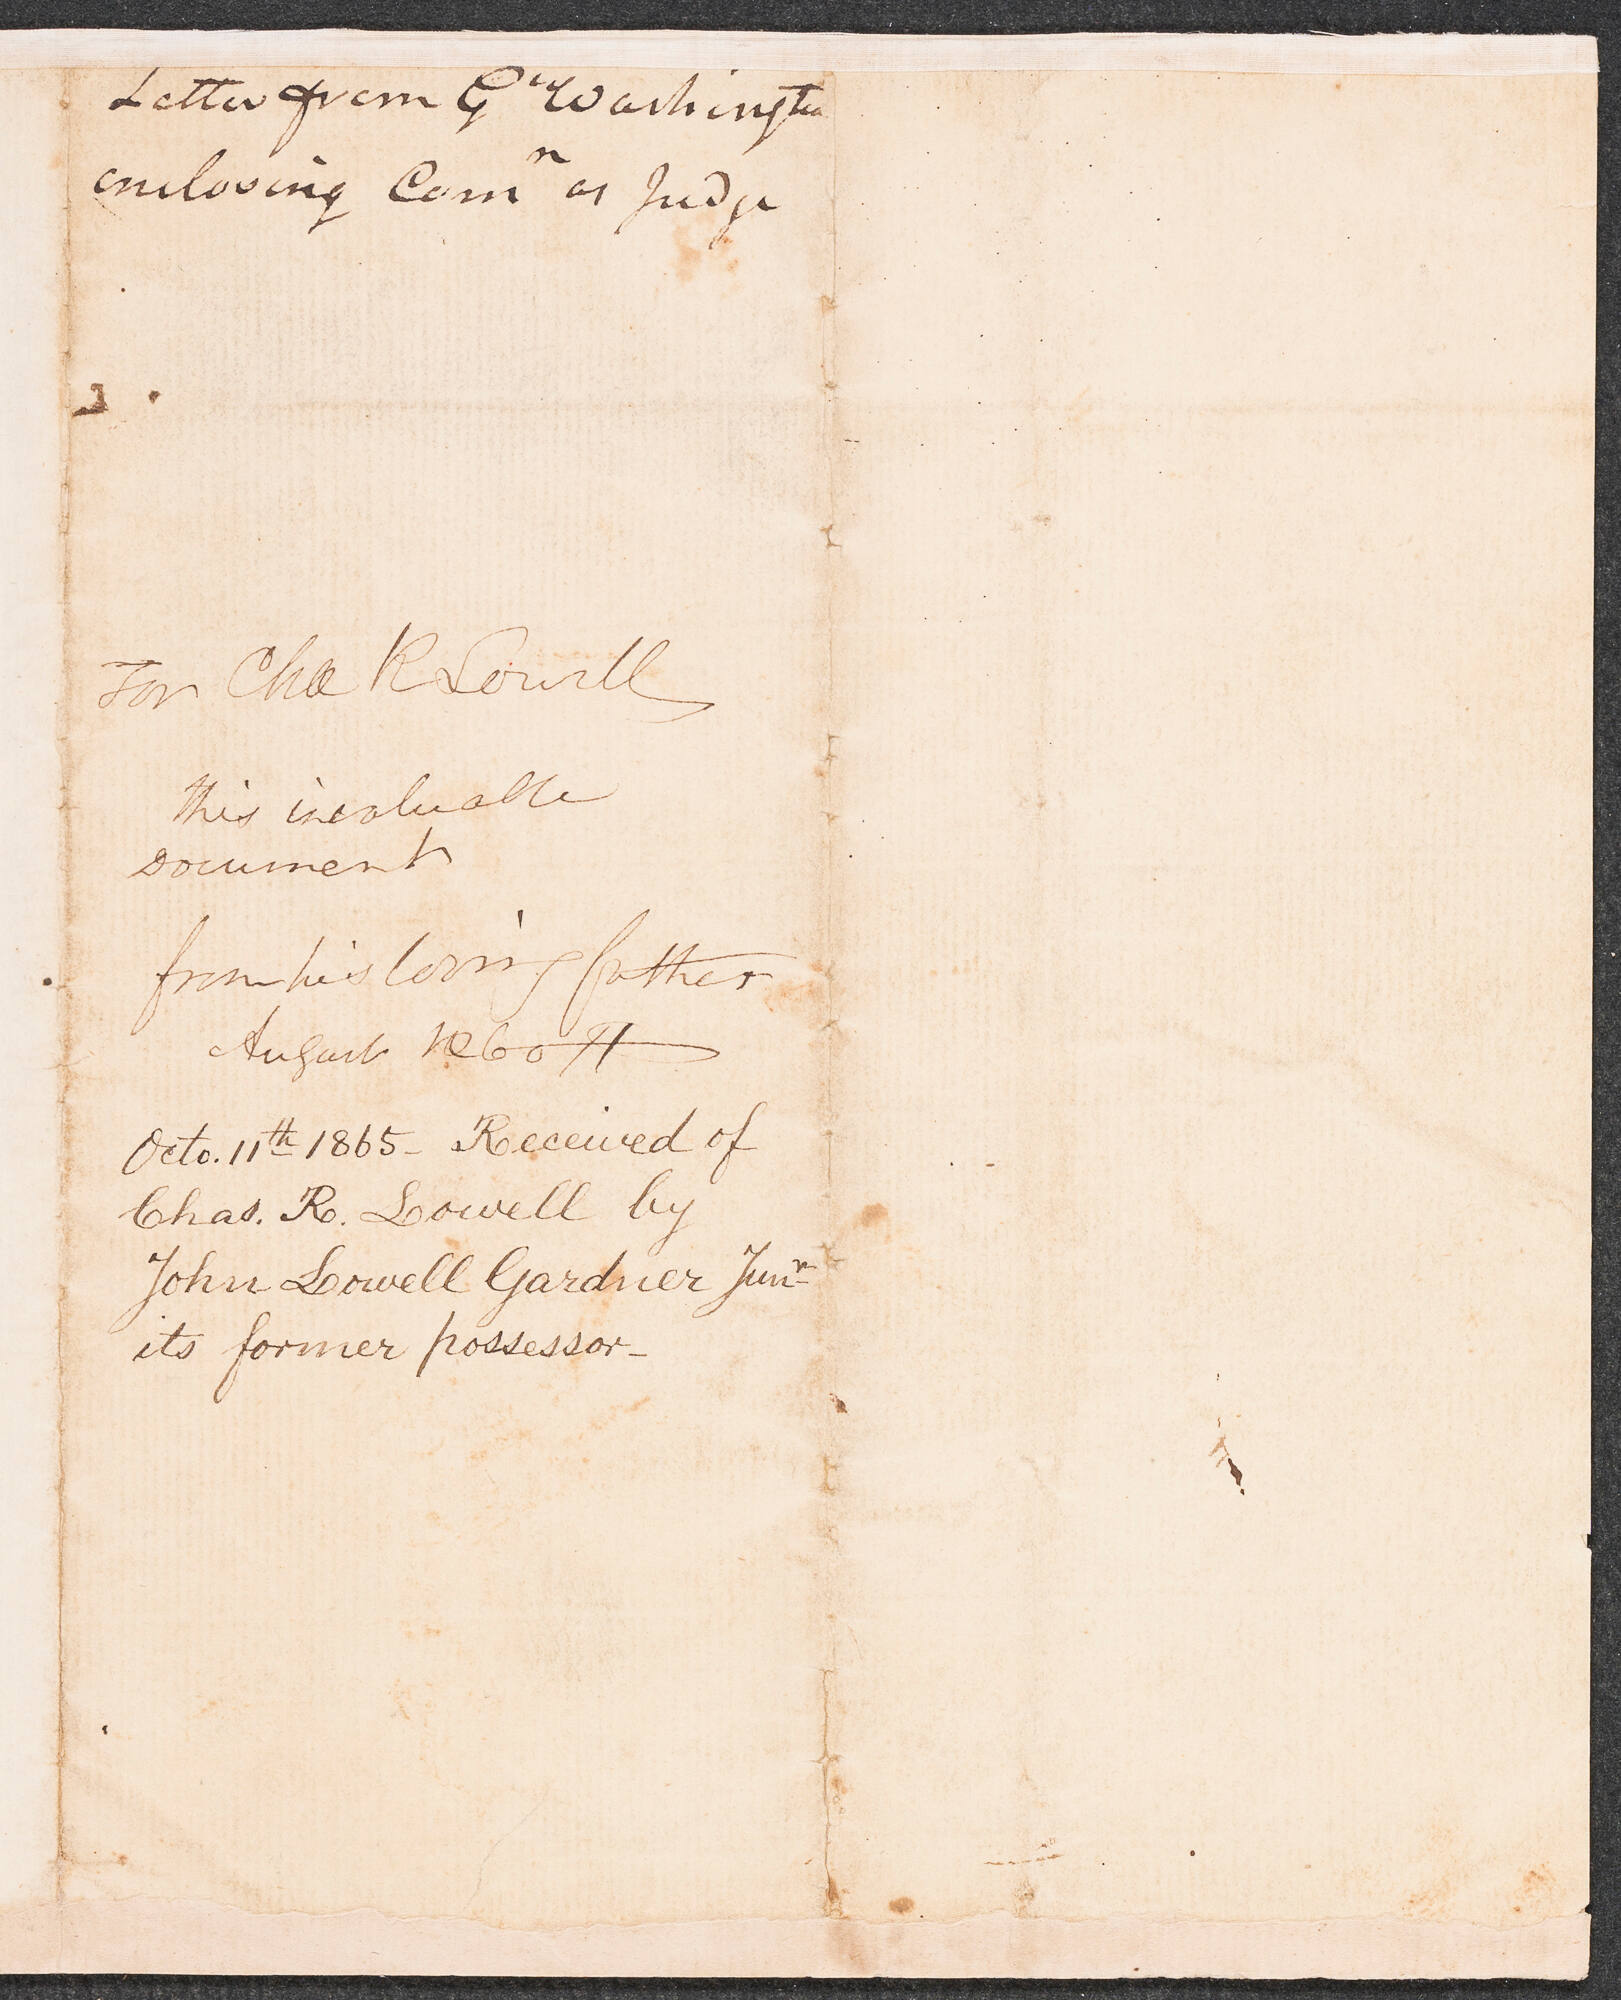 Letter from G Washington
enclosing Comn as Judge
For Cha R Lowell
this invaluable
Document
from his loving father
August 1860
Octo. 11th 1865 - Received of
Chas. R. Lowell by
John Lowell Gardner Junr
its former possessor -